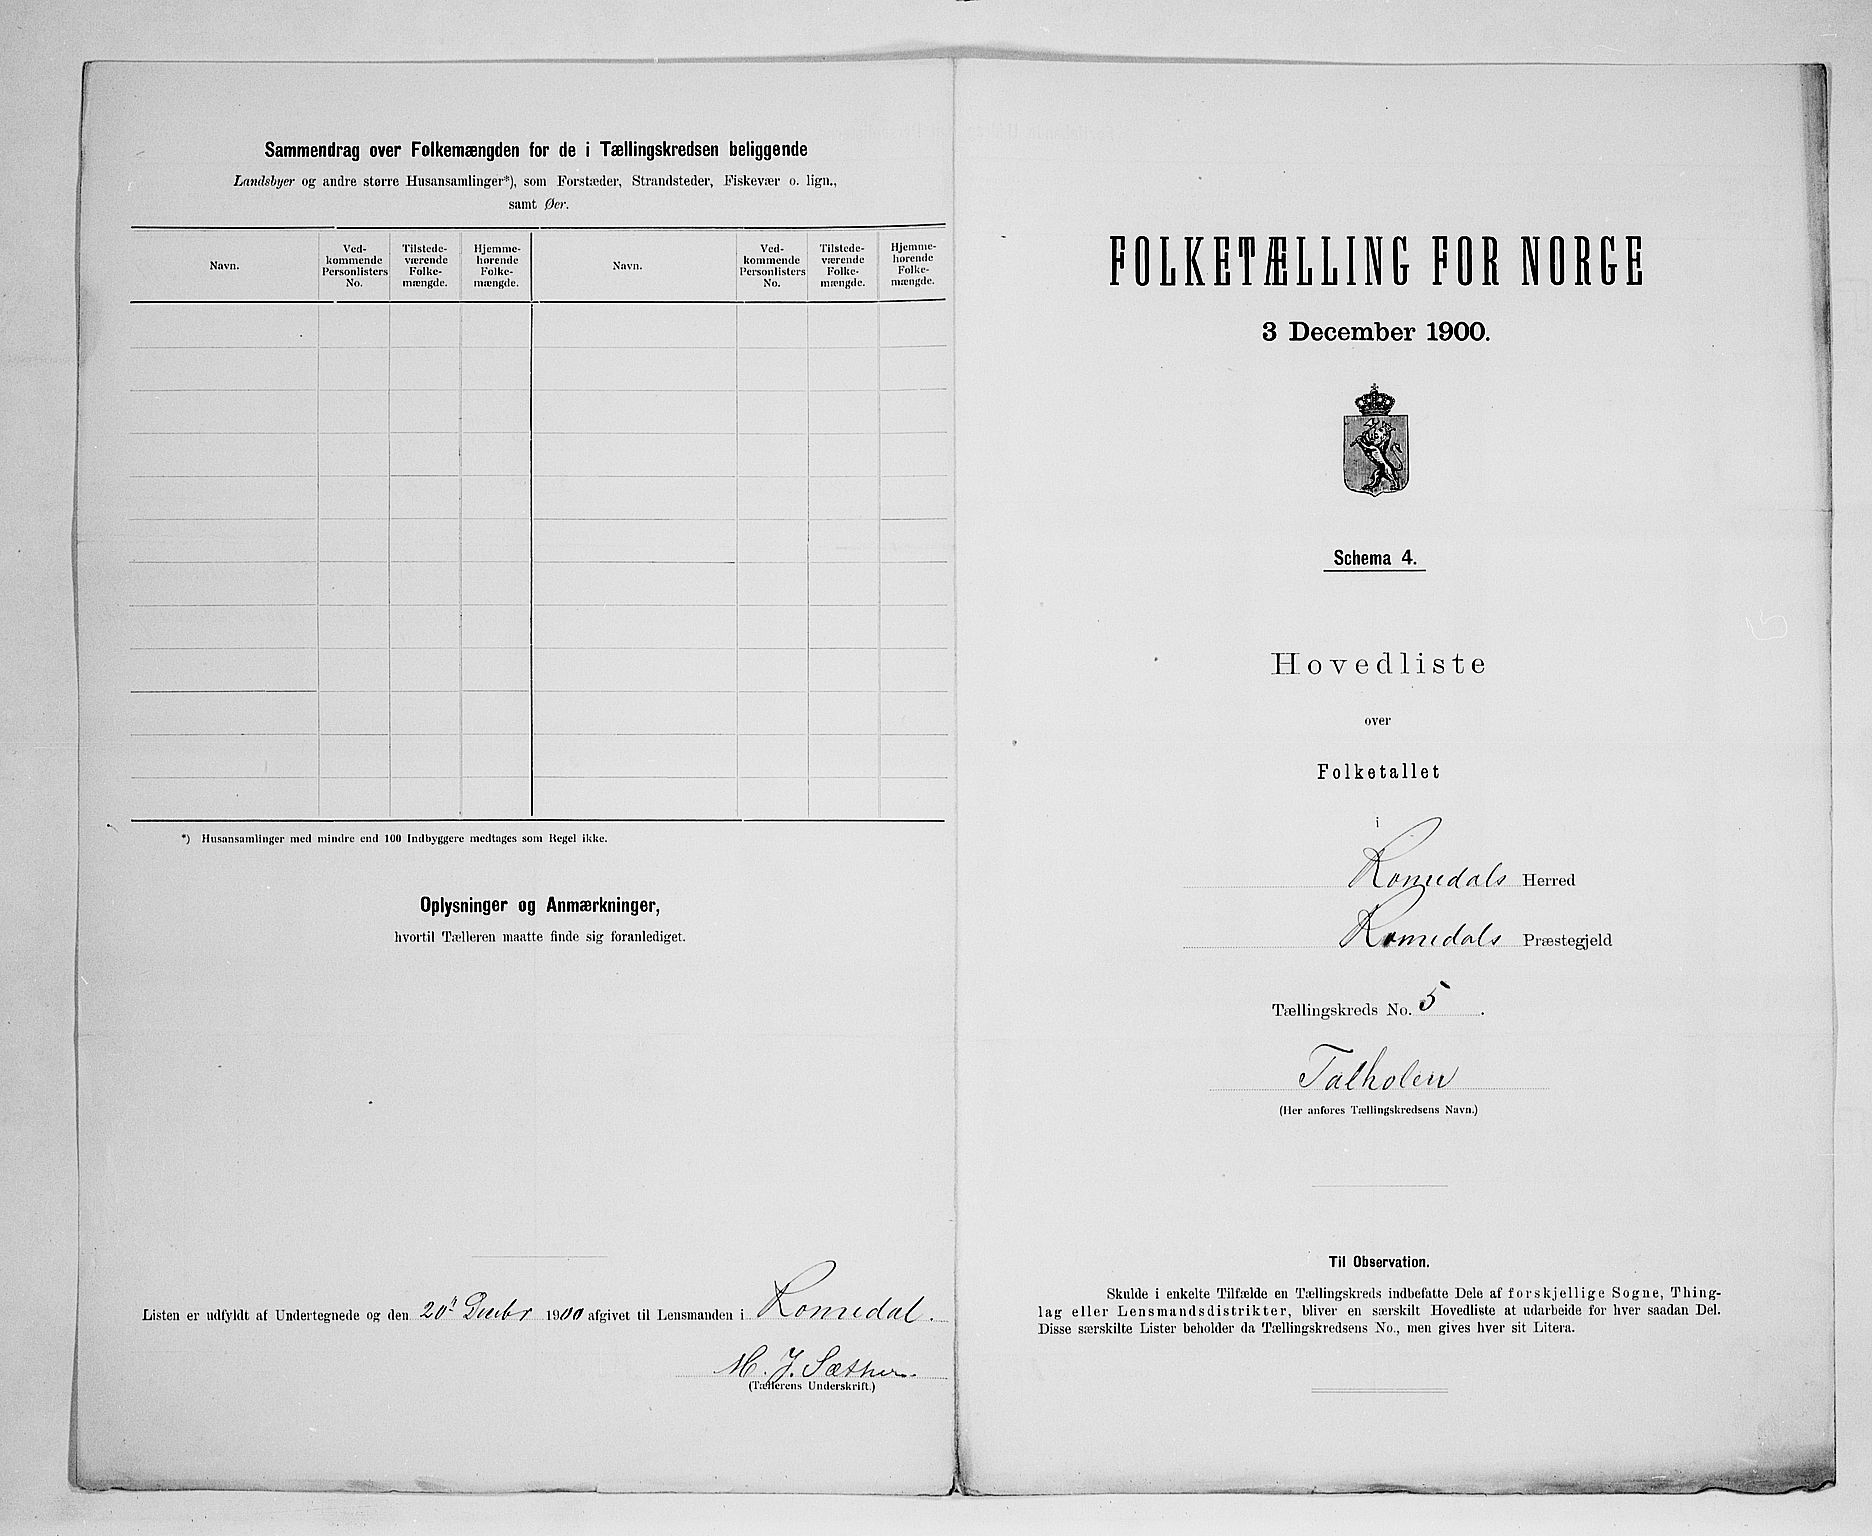 Sammendrag over Folkemængden for de i Tællingskredsen beliggende
Landsbyer og andre større Husansamlinger*), som Forstæder, Strandsteder, Fiskevær o. lign.,
samt Øer.
Navn.
Ved-
kommende
Personlisters
No.
Tilstede-
værende
Folke-
mængde.
Hjemme-
hørende
Folke-
mængde.
Navn.
Ved-
kommende
Personlisters
No.
Tilstede-
værende
Folke-
mængde.
Hjemme-
hørende
Folke-
mængde.
*) Husansamlinger med mindre end 100 Indbyggere medtages som Regel ikke.
Oplysninger og Anmærkninger,
hvortil Tælleren maatte finde sig foranlediget.
Listen er udfyldt af Undertegnede og den 20' Decbr 1900 afgivet til Lensmanden i Romedal.
M. J. Sæther.
(Tællerens Underskrift.)
FOLKETÆLLING FOR NORGE
3 December 1900.
Schema 4.
Hovedliste
over
Folketallet
i
Romedals Herred
Romedals Præstegjeld
Tællingskreds No. 5.
Talholen
(Her anføres Tællingskredsens Navn.)
Til Observation.
Skulde i enkelte Tilfælde en Tællingskreds indbefatte Dele af forskjellige Sogne, Thing-
lag eller Lensmandsdistrikter, bliver en særskilt Hovedliste at udarbeide for hver saadan Del.
Disse særskilte Lister beholder da Tællingskredsens No., men gives hver sit Litera.